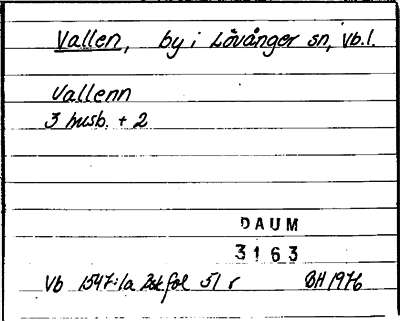 Vallen, by i Lövånger sn, Vb. l.
Vallenn
3 husb. + 2
DAUM
3163
Vb 1547:1a fol 51 r BH 1976